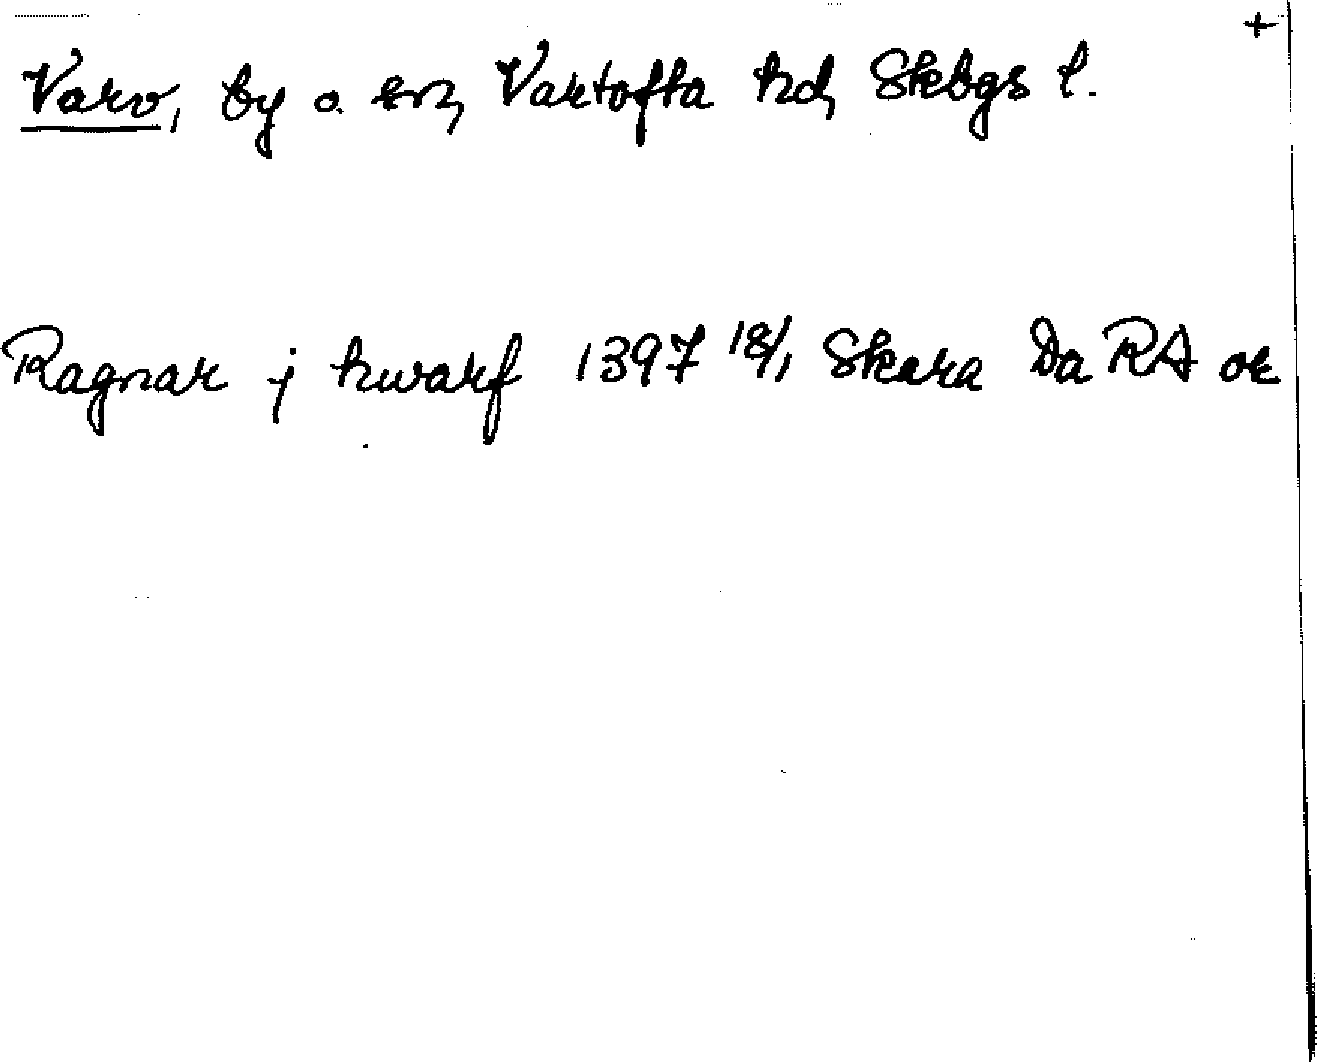 +
Varv, by o. sn, Vartofta hd, Skbgs l.
Ragnar j hwarf 1397 18/1 Skara Da RA or